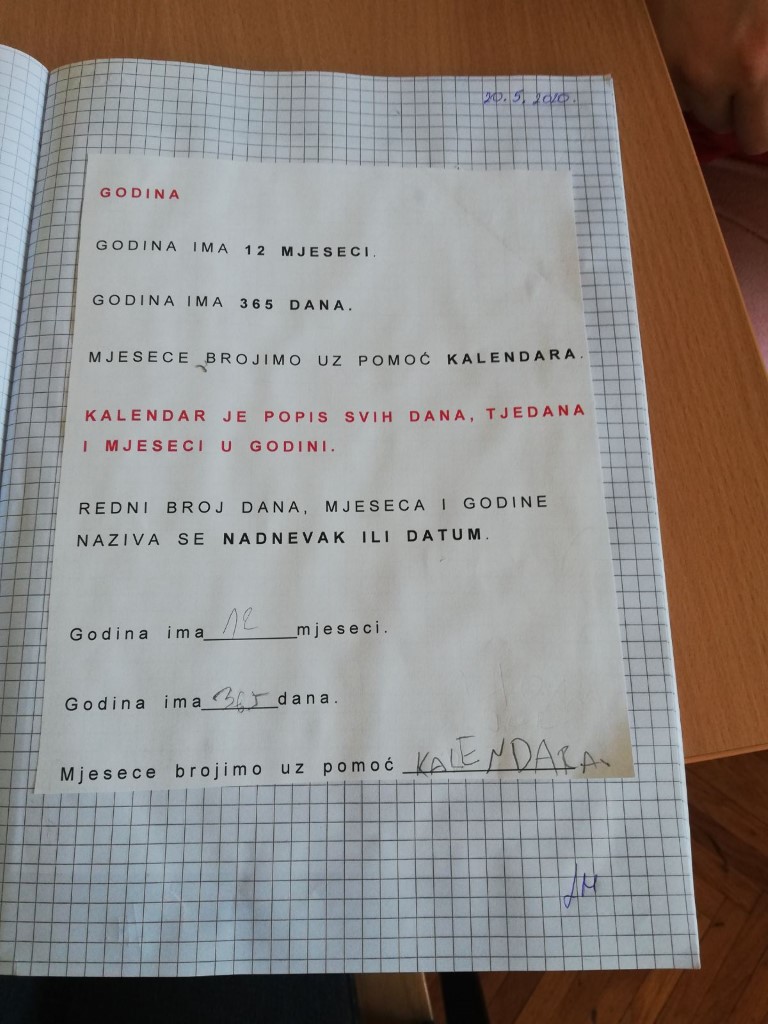 20.5.2010.
GODINA
GODINA IMA 12 MJESECI.
GODINA IMA 365 DANA.
MJESECE BROJIMO UZ POMOĆ KALENDARA.
KALENDAR JE POPIS SVIH DANA, TJEDANA
I MJESECI U GODINI.
REDNI BROJ DANA, MJESECA I GODINE
NAZIVA SE NADNEVAK ILI DATUM.
Godina ima 12 mjeseci.
Godina ima 365 dana.
Mjesece brojimo uz pomoć KALENDARA.